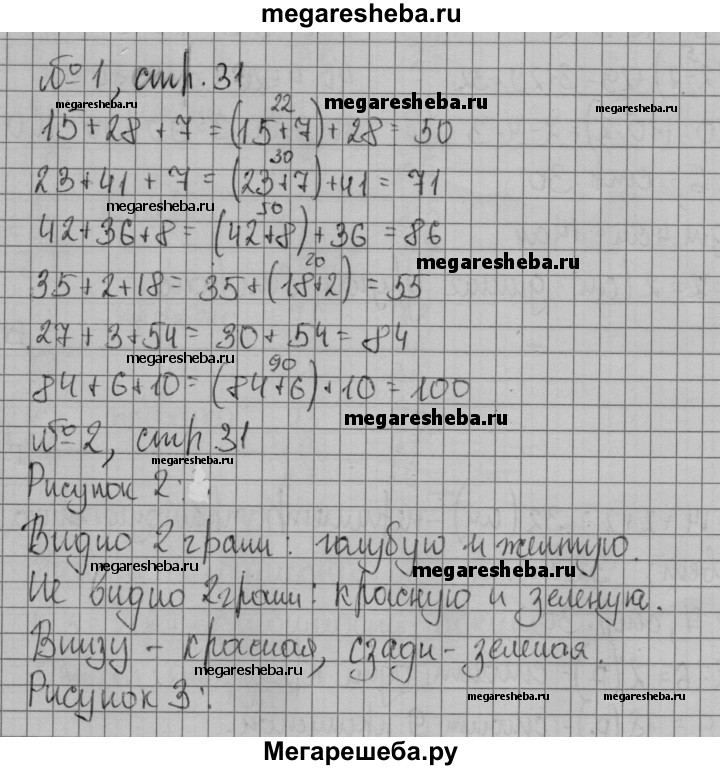 megaresheba.ru
№ 1, стр. 31
megaresheba.ru
megaresheba.ru
22
15+28+7=(15+7)+28=50
30
23+41+7=(23+7)+41=71
megaresheba.ru
50
42+36+8=(42+8)+36=86
megaresheba.ru
20
35+2+18=35+(18+2)=55
27+3+54=30+54=84
megaresheba.ru
90
84+6+10=(84+6)+10=100
megaresheba.ru
№ 2, стр. 31
megaresheba.ru
Рисунок 2:
Видно 2 грани: голубую и желтую.
megaresheba.ru
megaresheba.ru
Не видно 2 грани: красную и зеленую.
Внизу - красная, сзади - зеленая.
megaresheba.ru
Рисунок 3:
megaresheba.ru
megaresheba.ru
Мегарешеба.ру